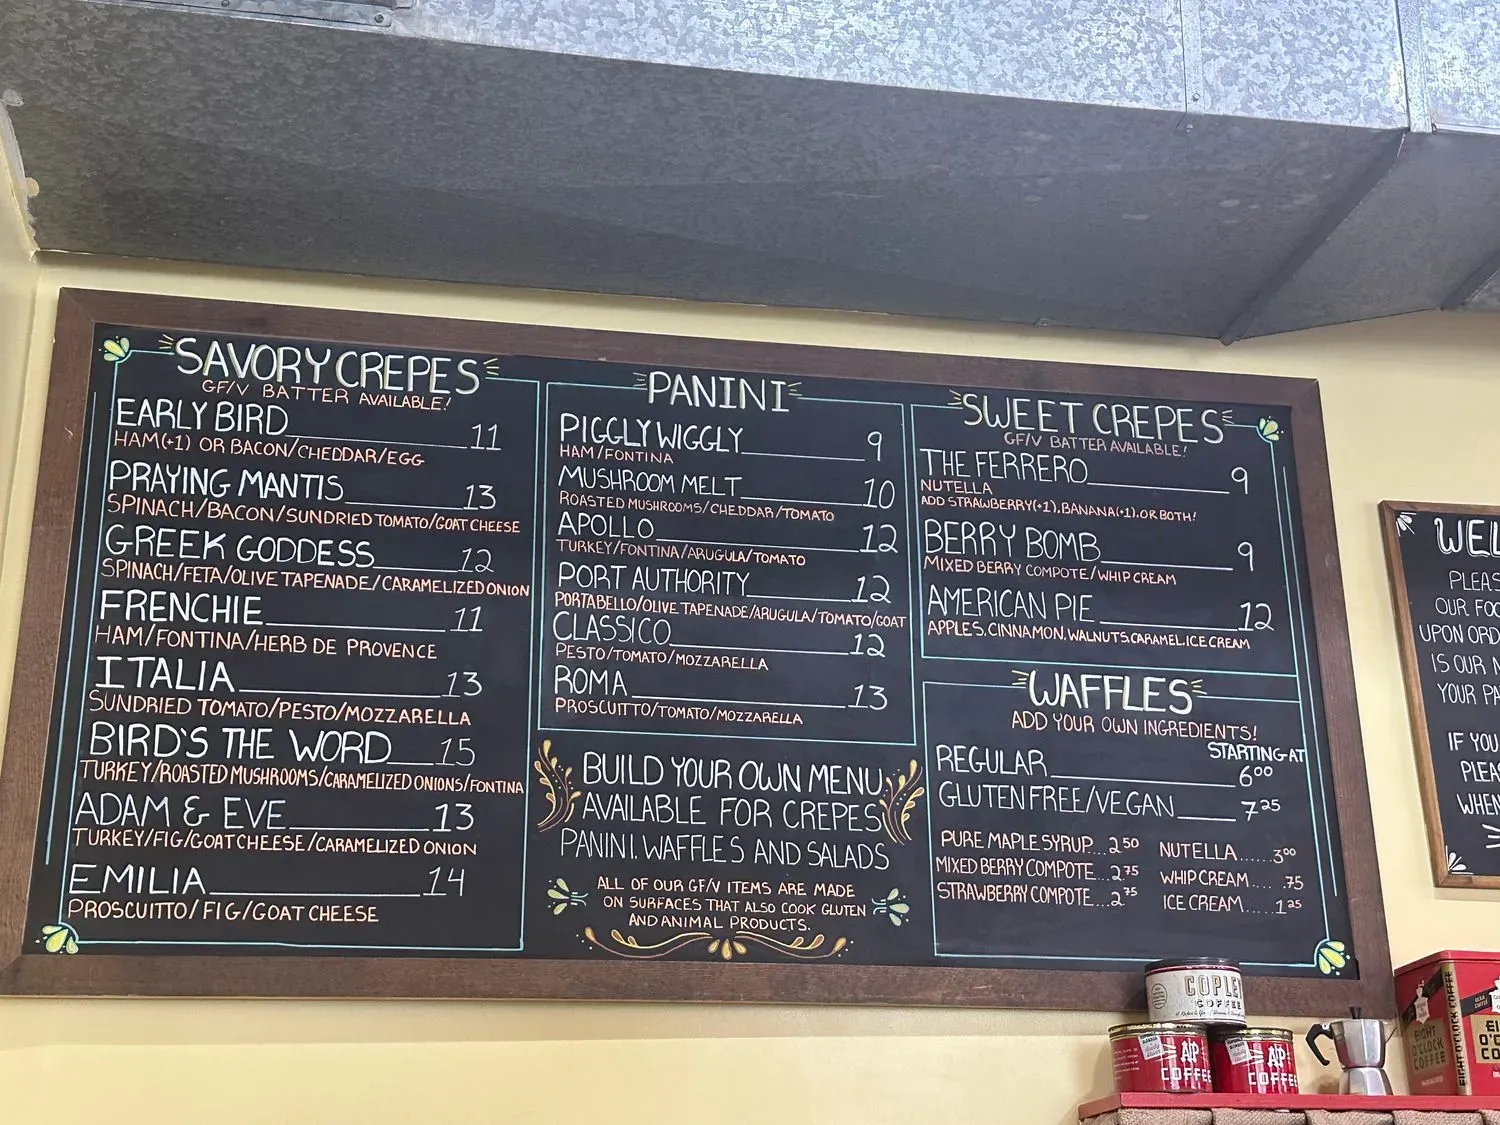 SAVORY CREPES
GF/V BATTER AVAILABLE!
EARLY BIRD 11
HAM(+1) OR BACON/CHEDDAR/EGG
PRAYING MANTIS 13
SPINACH/BACON/SUNDRIED TOMATO/GOAT CHEESE
GREEK GODDESS 12
SPINACH/FETA/OLIVE TAPENADE/CARAMELIZED ONION
FRENCHIE 11
HAM/FONTINA/HERB DE PROVENCE
ITALIA 13
SUNDRIED TOMATO/PESTO/MOZZARELLA
BIRD'S THE WORD 15
TURKEY/ROASTED MUSHROOMS/CARAMELIZED ONIONS/FONTINA
ADAM & EVE 13
TURKEY/FIG/GOAT CHEESE/CARAMELIZED ONION
EMILIA 14
PROSCUITTO/FIG/GOAT CHEESE
PANINI
PIGGLY WIGGLY 9
HAM/FONTINA
MUSHROOM MELT 10
ROASTED MUSHROOMS/CHEDDAR/TOMATO
APOLLO 12
TURKEY/FONTINA/ARUGULA/TOMATO
PORT AUTHORITY 12
PORTABELLO/OLIVE TAPENADE/ARUGULA/TOMATO/GOAT
CLASSICO 12
PESTO/TOMATO/MOZZARELLA
ROMA 13
PROSCUITTO/TOMATO/MOZZARELLA
BUILD YOUR OWN MENU
AVAILABLE FOR CREPES
PANINI, WAFFLES AND SALADS
ALL OF OUR GF/V ITEMS ARE MADE
ON SURFACES THAT ALSO COOK GLUTEN
AND ANIMAL PRODUCTS.
SWEET CREPES
GF/V BATTER AVAILABLE!
THE FERRERO 9
NUTELLA
ADD STRAWBERRY(+1), BANANA(+1), OR BOTH!
BERRY BOMB 9
MIXED BERRY COMPOTE/WHIP CREAM
AMERICAN PIE 12
APPLES, CINNAMON, WALNUTS, CARAMEL, ICE CREAM
WAFFLES
ADD YOUR OWN INGREDIENTS!
STARTING AT
REGULAR 6 00
GLUTEN FREE/VEGAN 7 25
PURE MAPLE SYRUP... 2 50
MIXED BERRY COMPOTE... 2 75
STRAWBERRY COMPOTE... 2 75
NUTELLA...... 3 00
WHIP CREAM.... .75
ICE CREAM..... 1 25
PLEAS
OUR FOO
UPON ORD
IS OUR
YOUR PA
IF YOU
PLEA
WHEN
COFFEE
A&P
COFFEE
A&P
COFFEE
EIGHT
O'CLOCK
COFFEE
EIGHT O'CLOCK COFFEE